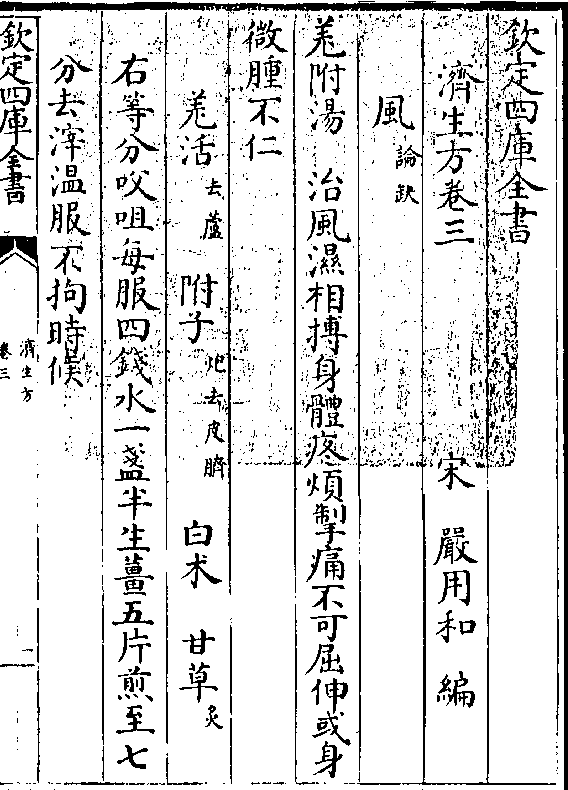 欽定四庫全書
濟生方卷三
宋 嚴用和 編
風論缺
羗附湯 治風濕相搏身體疼煩掣痛不可屈伸或身
微腫不仁
羗活去蘆 附子炮去皮臍 白术 甘草炙
右等分㕮咀每服四錢水一盞半生薑五片煎至七
分去滓温服不拘時候
欽定四庫全書
濟生方
卷三
一